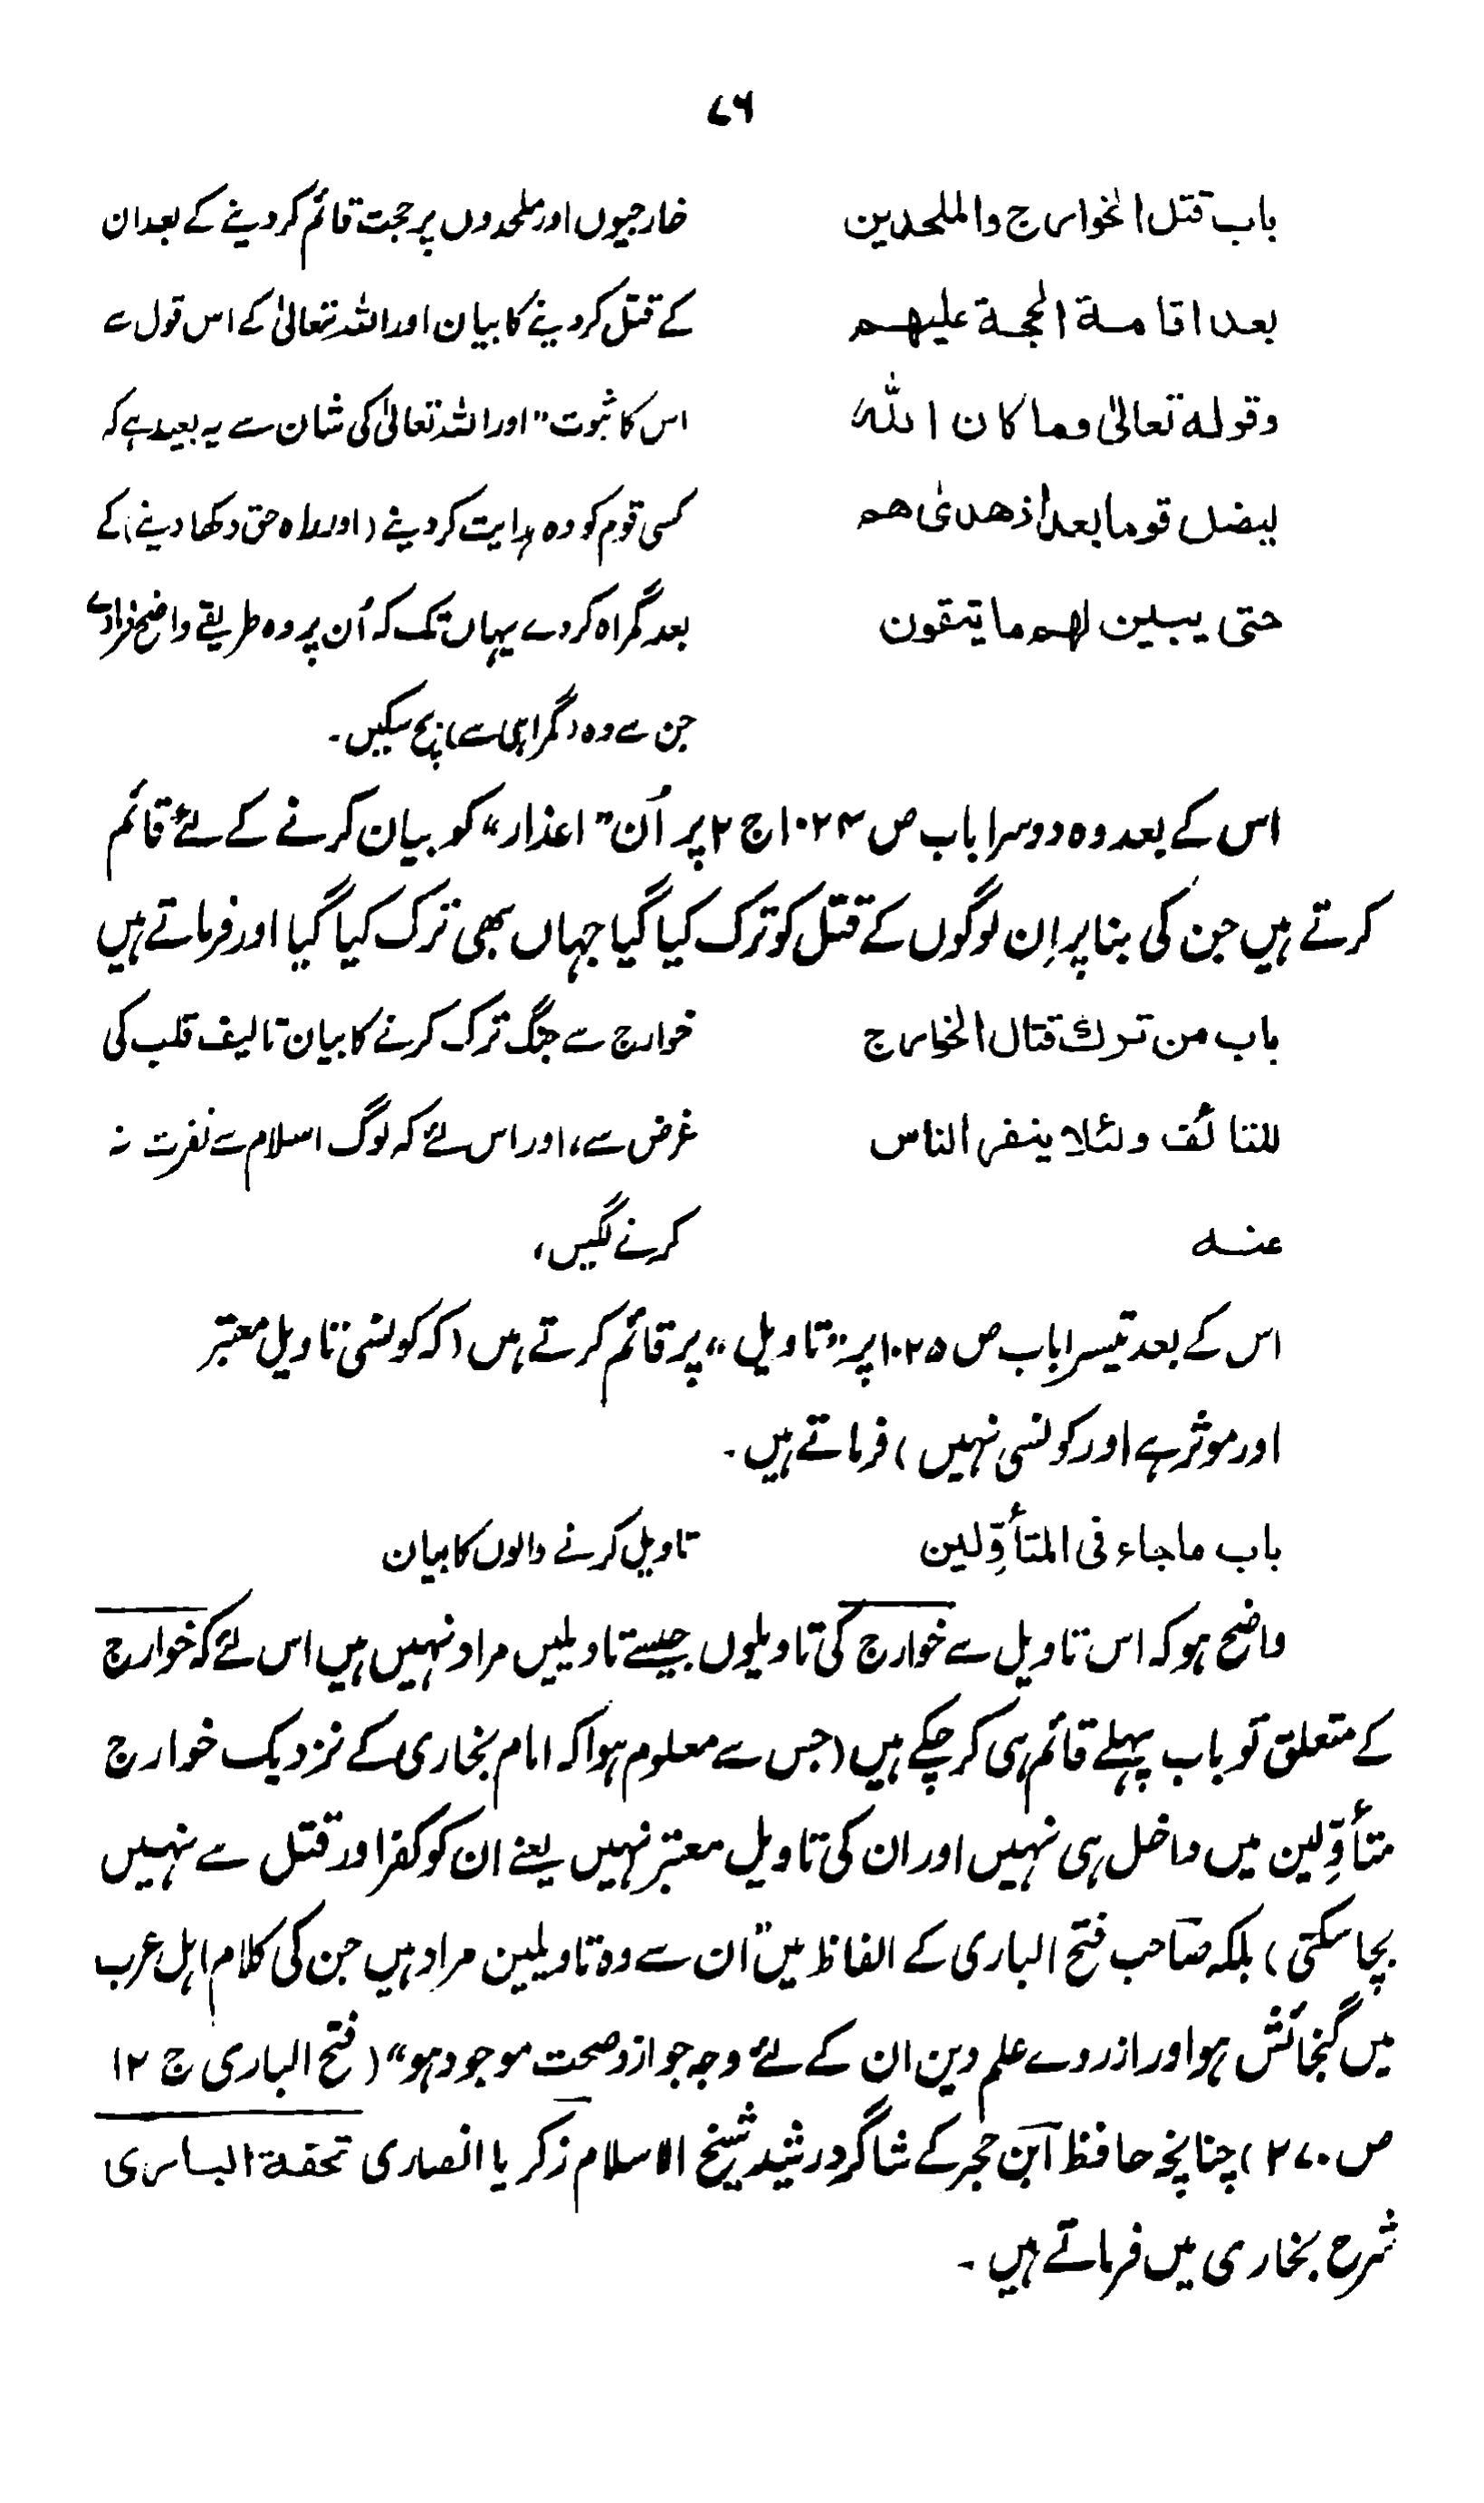 ۷۶
باب قتل الخوارج والملحدین خارجیوں اور ملحدوں پر حجت قائم کر دینے کے بعد ان
بعد اقامة الحجة علیهم کے قتل کر دینے کا بیان اور اللہ تعالیٰ کے اس قول سے
وقوله تعالیٰ وما کان اللهُ اس کا ثبوت "اور اللہ تعالیٰ کی شان سے یہ بعید ہے کہ
لیضل قوما بعد اذ هدٰی هم کسی قوم کو وہ ہدایت کر دینے (اور راہ حق دکھا دینے) کے
حتی یبین لهم ما یتقون بعد گمراہ کر دے یہاں تک کہ اُن پر وہ طریقے واضح فرما دے
جن سے وہ (گمراہی سے) بچ سکیں۔
اس کے بعد وہ دوسرا باب ص ۱۰۲۴ ج ۲ پر اُن "اعذار" کو بیان کرنے کے لئے قائم
کرتے ہیں جن کی بنا پر اِن لوگوں کے قتل کو ترک کیا گیا جہاں بھی ترک کیا گیا اور فرماتے ہیں
باب من ترك قتال الخوارج خوارج سے جنگ ترک کرنے کا بیان تالیف قلب کی
للتالف ولئلا ینفر الناس غرض سے، اور اس لئے کہ لوگ اسلام سے نفرت نہ
عنه کرنے لگیں،
اس کے بعد تیسرا باب ص ۱۰۲۵ پر "تاویل" پر قائم کرتے ہیں (کہ کونسی تاویل معتبر
اور موثر ہے اور کونسی نہیں) فرماتے ہیں۔
باب ماجاء فی المتأوِّلین تاویل کرنے والوں کا بیان
واضح ہو کہ اس تاویل سے خوارج کی تاویلوں جیسے تاویلیں مراد نہیں ہیں اس لئے کہ خوارج
کے متعلق تو باب پہلے قائم ہی کر چکے ہیں (جس سے معلوم ہوا کہ امام بخاری کے نزدیک خوارج
متأوِّلین میں داخل ہی نہیں اور ان کی تاویل معتبر نہیں یعنے ان کو کفر اور قتل سے نہیں
بچا سکتی) بلکہ صاحب فتح الباری کے الفاظ میں "ان سے وہ تاویلین مراد ہیں جن کی کلام اہل عرب
میں گنجائش ہو اور از روے علم دین ان کے لئے وجہ جواز وصحت موجود ہو" (فتح الباری ج ۱۲
ص ۲۷۰) چنانچہ حافظ ابن حجر کے شاگرد رشید شیخ الاسلام زکریا انصاری تحفة الباری
شرح بخاری میں فرماتے ہیں۔